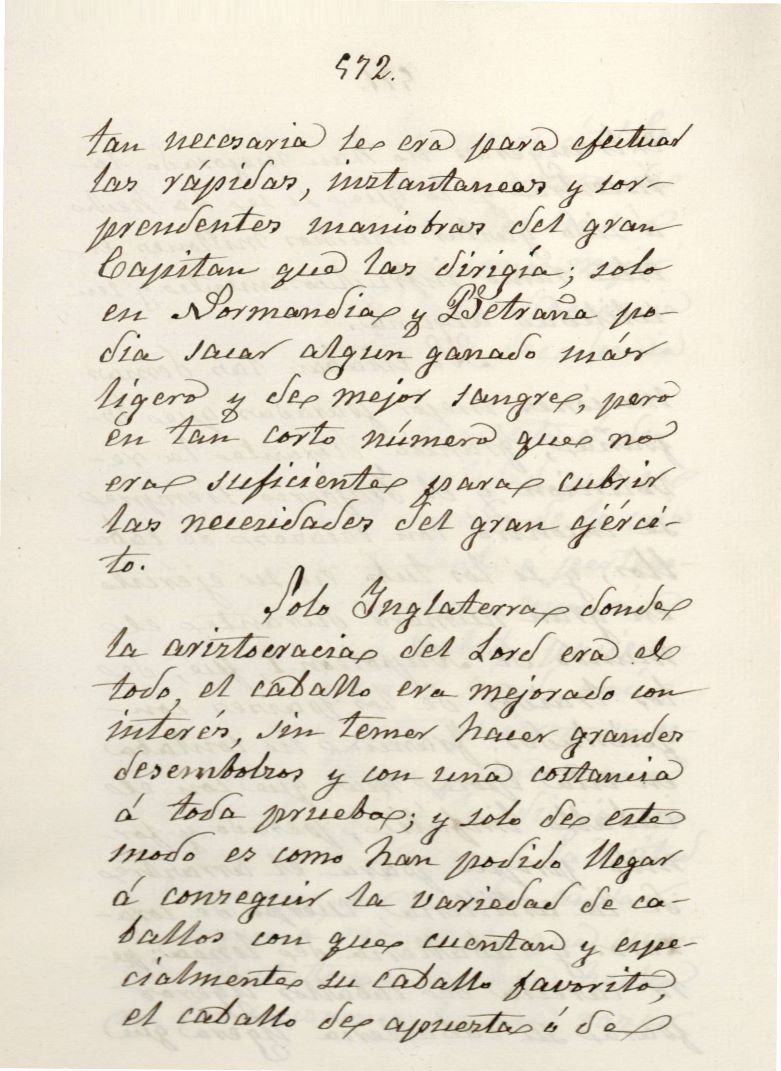 572.
tan necesaria le era para efectuar
las rápidas, instantaneas y sor-
prendentes maniobras del gran
Capitan que las dirigía; solo
en Normandia y Bretaña po-
dia sacar algun ganado más
ligero y de mejor sangre, pero
en tan corto número que no
era suficiente para cubrir
las necesidades del gran ejérci-
to.
Solo Inglaterra donde
la aristocracia del Lord era el
todo, el caballo era mejorado con
interés, sin temer hacer grandes
desembolsos y con una costancia
á toda prueba; y solo de este
modo es como han podido llegar
á conseguir la variedad de ca-
ballos con que cuentan y espe-
cialmente su caballo favorito,
el caballo de apuesta ó de